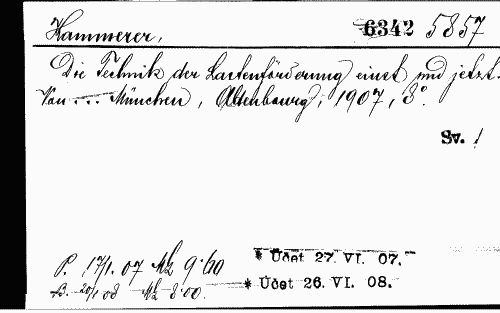 Kammerer, 6342 5857
Die Technik der Lastenförderung einst und jetzt.
Von ... München, Oldenbourg, 1907, 8°.
Sv. 1
P. 17/1. 07 Mk 9·60
* Účet 27. VI. 07.
B. 20/1 08 Mk 8·00.
* Účet 26. VI. 08.